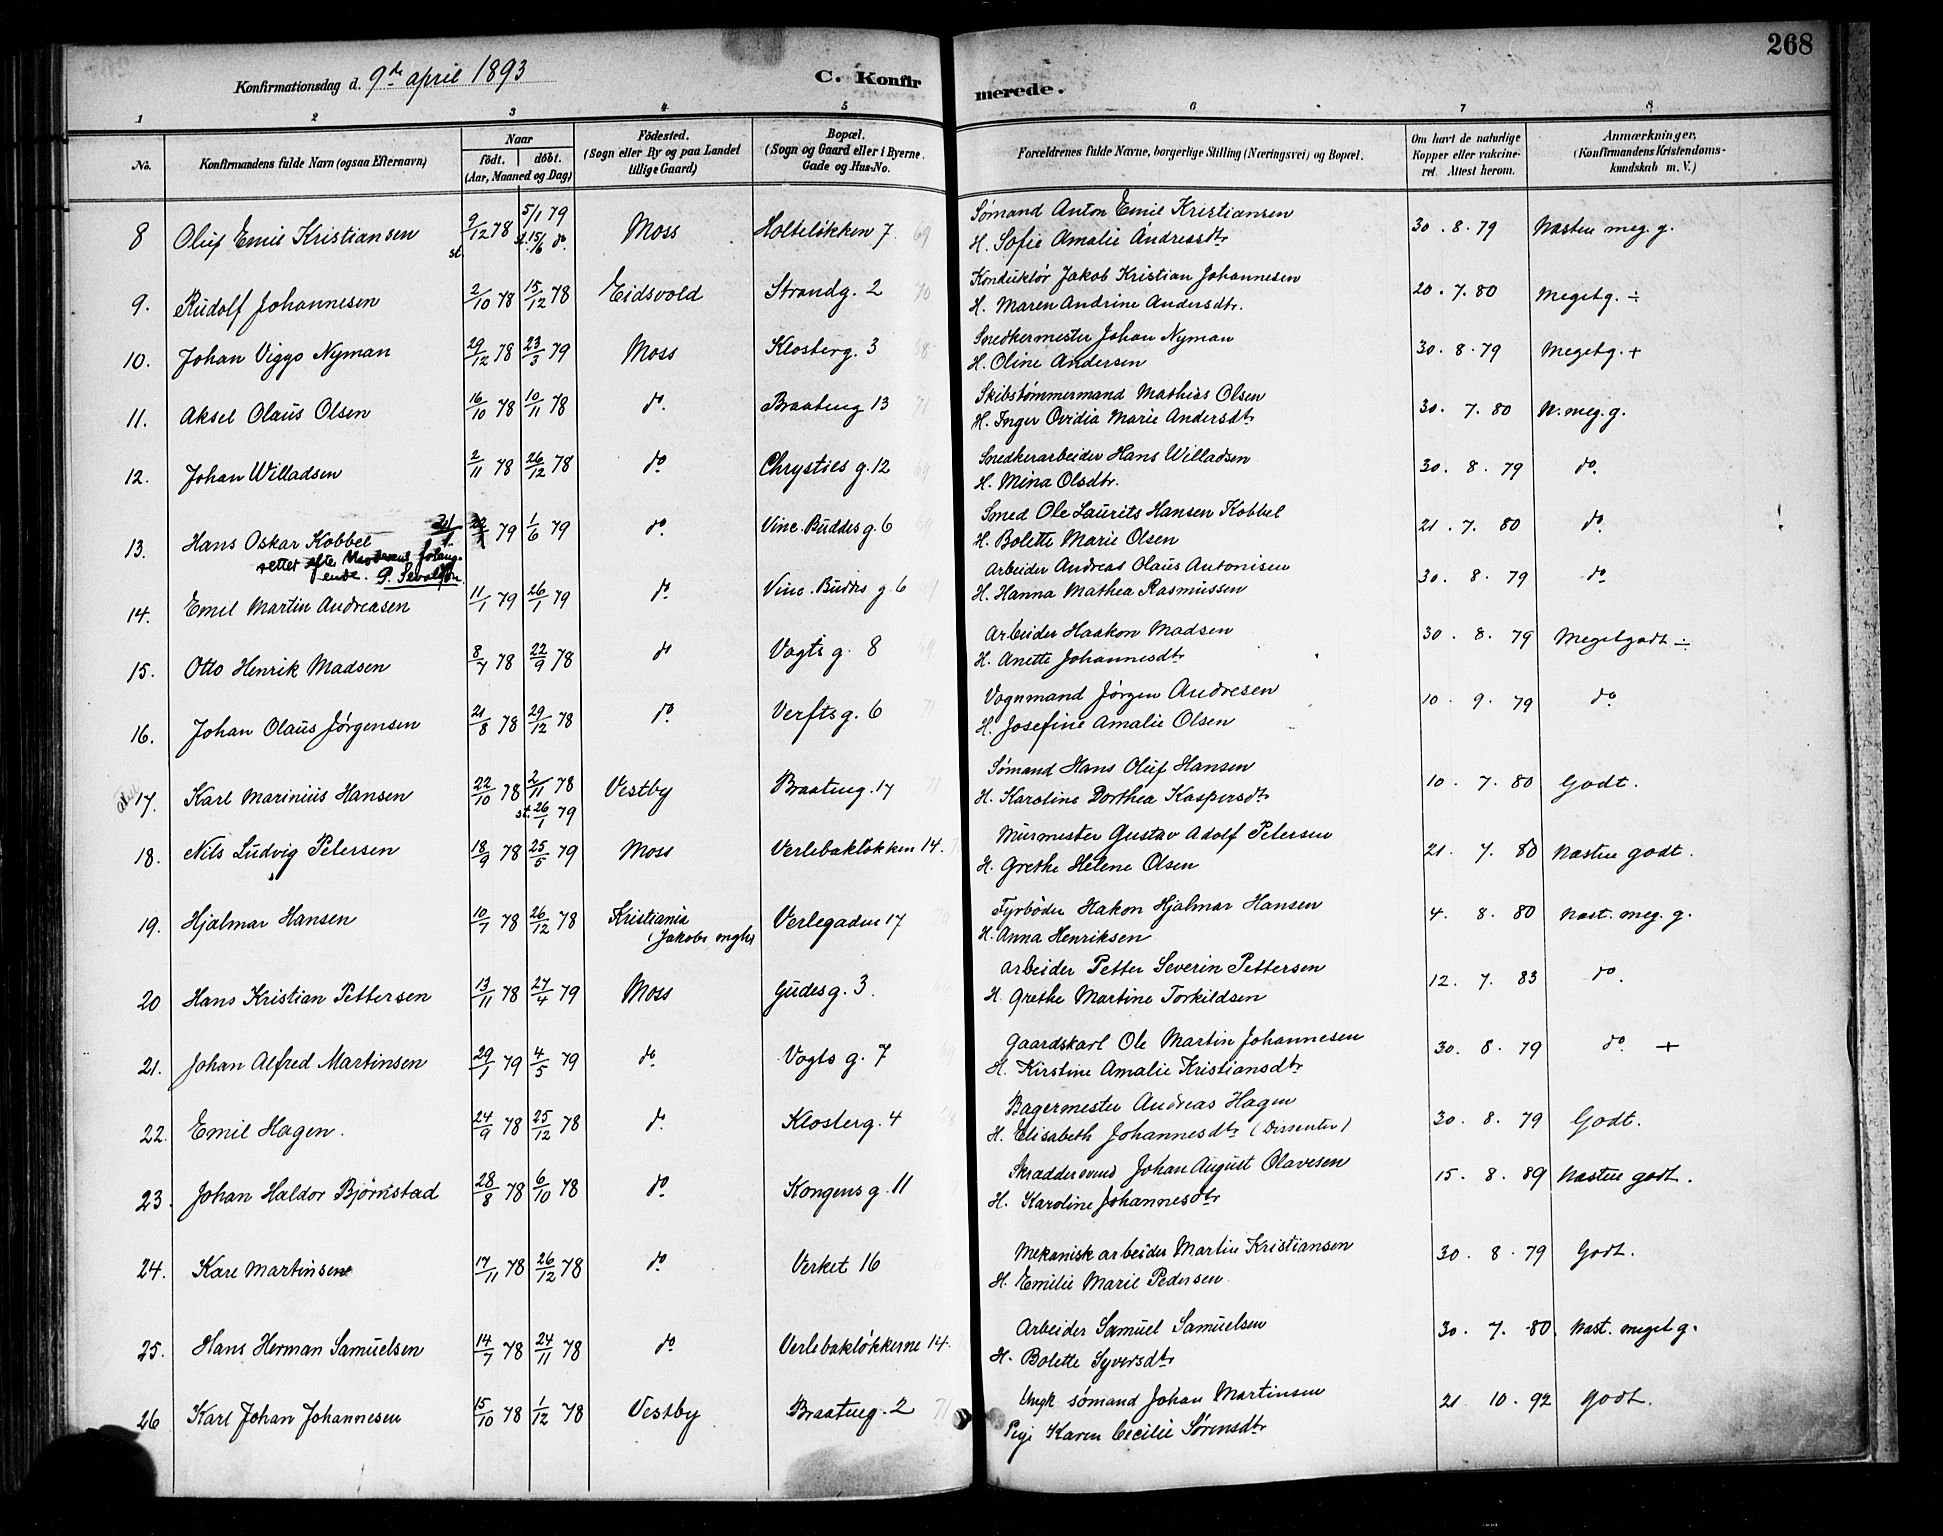 268
Konfirmationsdag d. 9de april 1893 C. Konfir merede.
1 2 3 4 5 6 7 8
No. Konfirmandens fulde Navn (ogsaa Efternavn) Naar født. døbt. (Aar, Maaned og Dag) Fødested. (Sogn eller By og paa Landet tillige Gaard) Bopæl. (Sogn og Gaard eller i Byerne Gade og Hus-No. Forældrenes fulde Navne, borgerlige Stilling (Næringsvei) og Bopæl. Om havt de naturlige Kopper eller vakcineret. Attest herom. Anmærkninger, (Konfirmandens Kristendomskundskab m. V.)
8 Oluf Emil Kristiansen 9/12 78 5/1 79 Moss Holteløkken 7 69 Sømand Anton Emil Kristiansen 30. 8. 79 Næsten meg. g.
st. st. 15/6 do. H. Sofie Amalie Andreasdtr
9. Rudolf Johannesen 2/10 78 15/12 78 Eidsvold Strandg. 2 70 Konduktør Jakob Kristian Johannesen 20. 7. 80 Megetg. ÷
H. Maren Andrine Andersdtr.
10. Johan Viggo Nyman 29/12 78 23/3 79 Moss Klosterg. 3 Snedkermester Johan Nyman 30. 8. 79 Megetg. +
H. Oline Andersen
11. Aksel Olaus Olsen 16/10 78 10/11 78 do. Braateng 13 71 Skibstømmermand Mathias Olsen 30. 7. 80 N. meg. g.
H. Inger Ovidia Marie Andersdtr
12. Johan Willadsen 2/11 78 26/12 78 do. Chrysties g. 12 69 Snedkerarbeider Hans Willadsen 30. 8. 79 do.
H. Mina Olsdtr.
13. Hans Oskar Kobbel 79 1/6 79 do. Vinc. Buddes g. 6 Smed Ole Laurits Hansen Kobbel 21. 7. 80 do.
rettet efter H. Bolette Marie Olsen
14. Emil Martin Andreasen 11/1 79 26/1 79 do. Vinc. Buddes g. 6 Arbeider Andreas Olaus Antonisen 30. 8. 79 do.
H. Hanna Mathea Rasmussen
15. Otto Henrik Madsen 8/7 78 22/9 78 do Vogts g. 8 69 Arbeider Haakon Madsen 30. 8. 79 Megetgodt ÷
H. Anette Johannesdtr
16. Johan Olaus Jørgensen 21/8 78 29/12 78 do. Verfts g. 6 71 Vognmand Jørgen Andresen 10. 9. 79 do
H. Josefine Amalie Olsen
17. Karl Marinius Hansen 22/10 78 2/11 78 Vestby Braateng. 17 71 Sømand Hans Oluf Hansen 10. 7. 80 Godt.
st. 26/1 79 H. Karoline Dorthea Kaspersdtr
18. Nils Ludvig Petersen 18/9 78 25/5 79 Moss Verlebakløkken 14. Murmester Gustav Adolf Petersen 21. 7. 80 Næsten godt.
H. Grethe Helene Olsen
19. Hjalmar Hansen 10/7 78 26/12 78 Kristiania Verlegaden 17 70 Fyrbøder Hakon Hjalmar Hansen 4. 8. 80 Næst. meg. g.
(Jakobs mgh) H. Anna Henriksen
20 Hans Kristian Pettersen 13/11 78 27/4 79 Moss Gudes g. 3. Arbeider Petter Severin Pettersen 12. 7. 83 do.
H. Grethe Martine Torkildsen
21. Johan Alfred Martinsen 29/1 79 4/5 79 do. Vogts g. 7 Gaardskarl Ole Martin Johannesen 30. 8. 79 do. +
H. Kirstine Amalie Kristiansdtr
22. Emil Hagen. 24/9 78 25/12 78 do. Klosterg. 4 Bagermester Andreas Hagen 30. 8. 79 Godt.
H. Elisabeth Johannesdtr (Dissenter)
23. Johan Haldor Bjørnstad 28/8 78 6/10 78 do. Kongens g. 11 Skræddersvend Johan August Olavesen 15. 8. 89 Næsten godt.
H. Karoline Johannesdtr
24. Kare Martinsen 17/11 78 26/12 78 do. Verket 16 Mekanisk arbeider Martin Kristiansen 30. 8. 79 Godt.
H. Emilie Marie Pedersen
25. Hans Herman Samuelsen 14/7 78 24/11 78 do. Verlebakløkkerne 14. Arbeider Samuel Samuelsen 30. 7. 80. Næst. meget g.
H. Bolette Syversdtr
26 Karl Johan Johannesen 15/10 78 1/12 78 Vestby Braateng. 2 71 Ungk sømand Johan Martinsen 21 10. 92 Godt.
Pige Karen Cecilie Sørensdtr